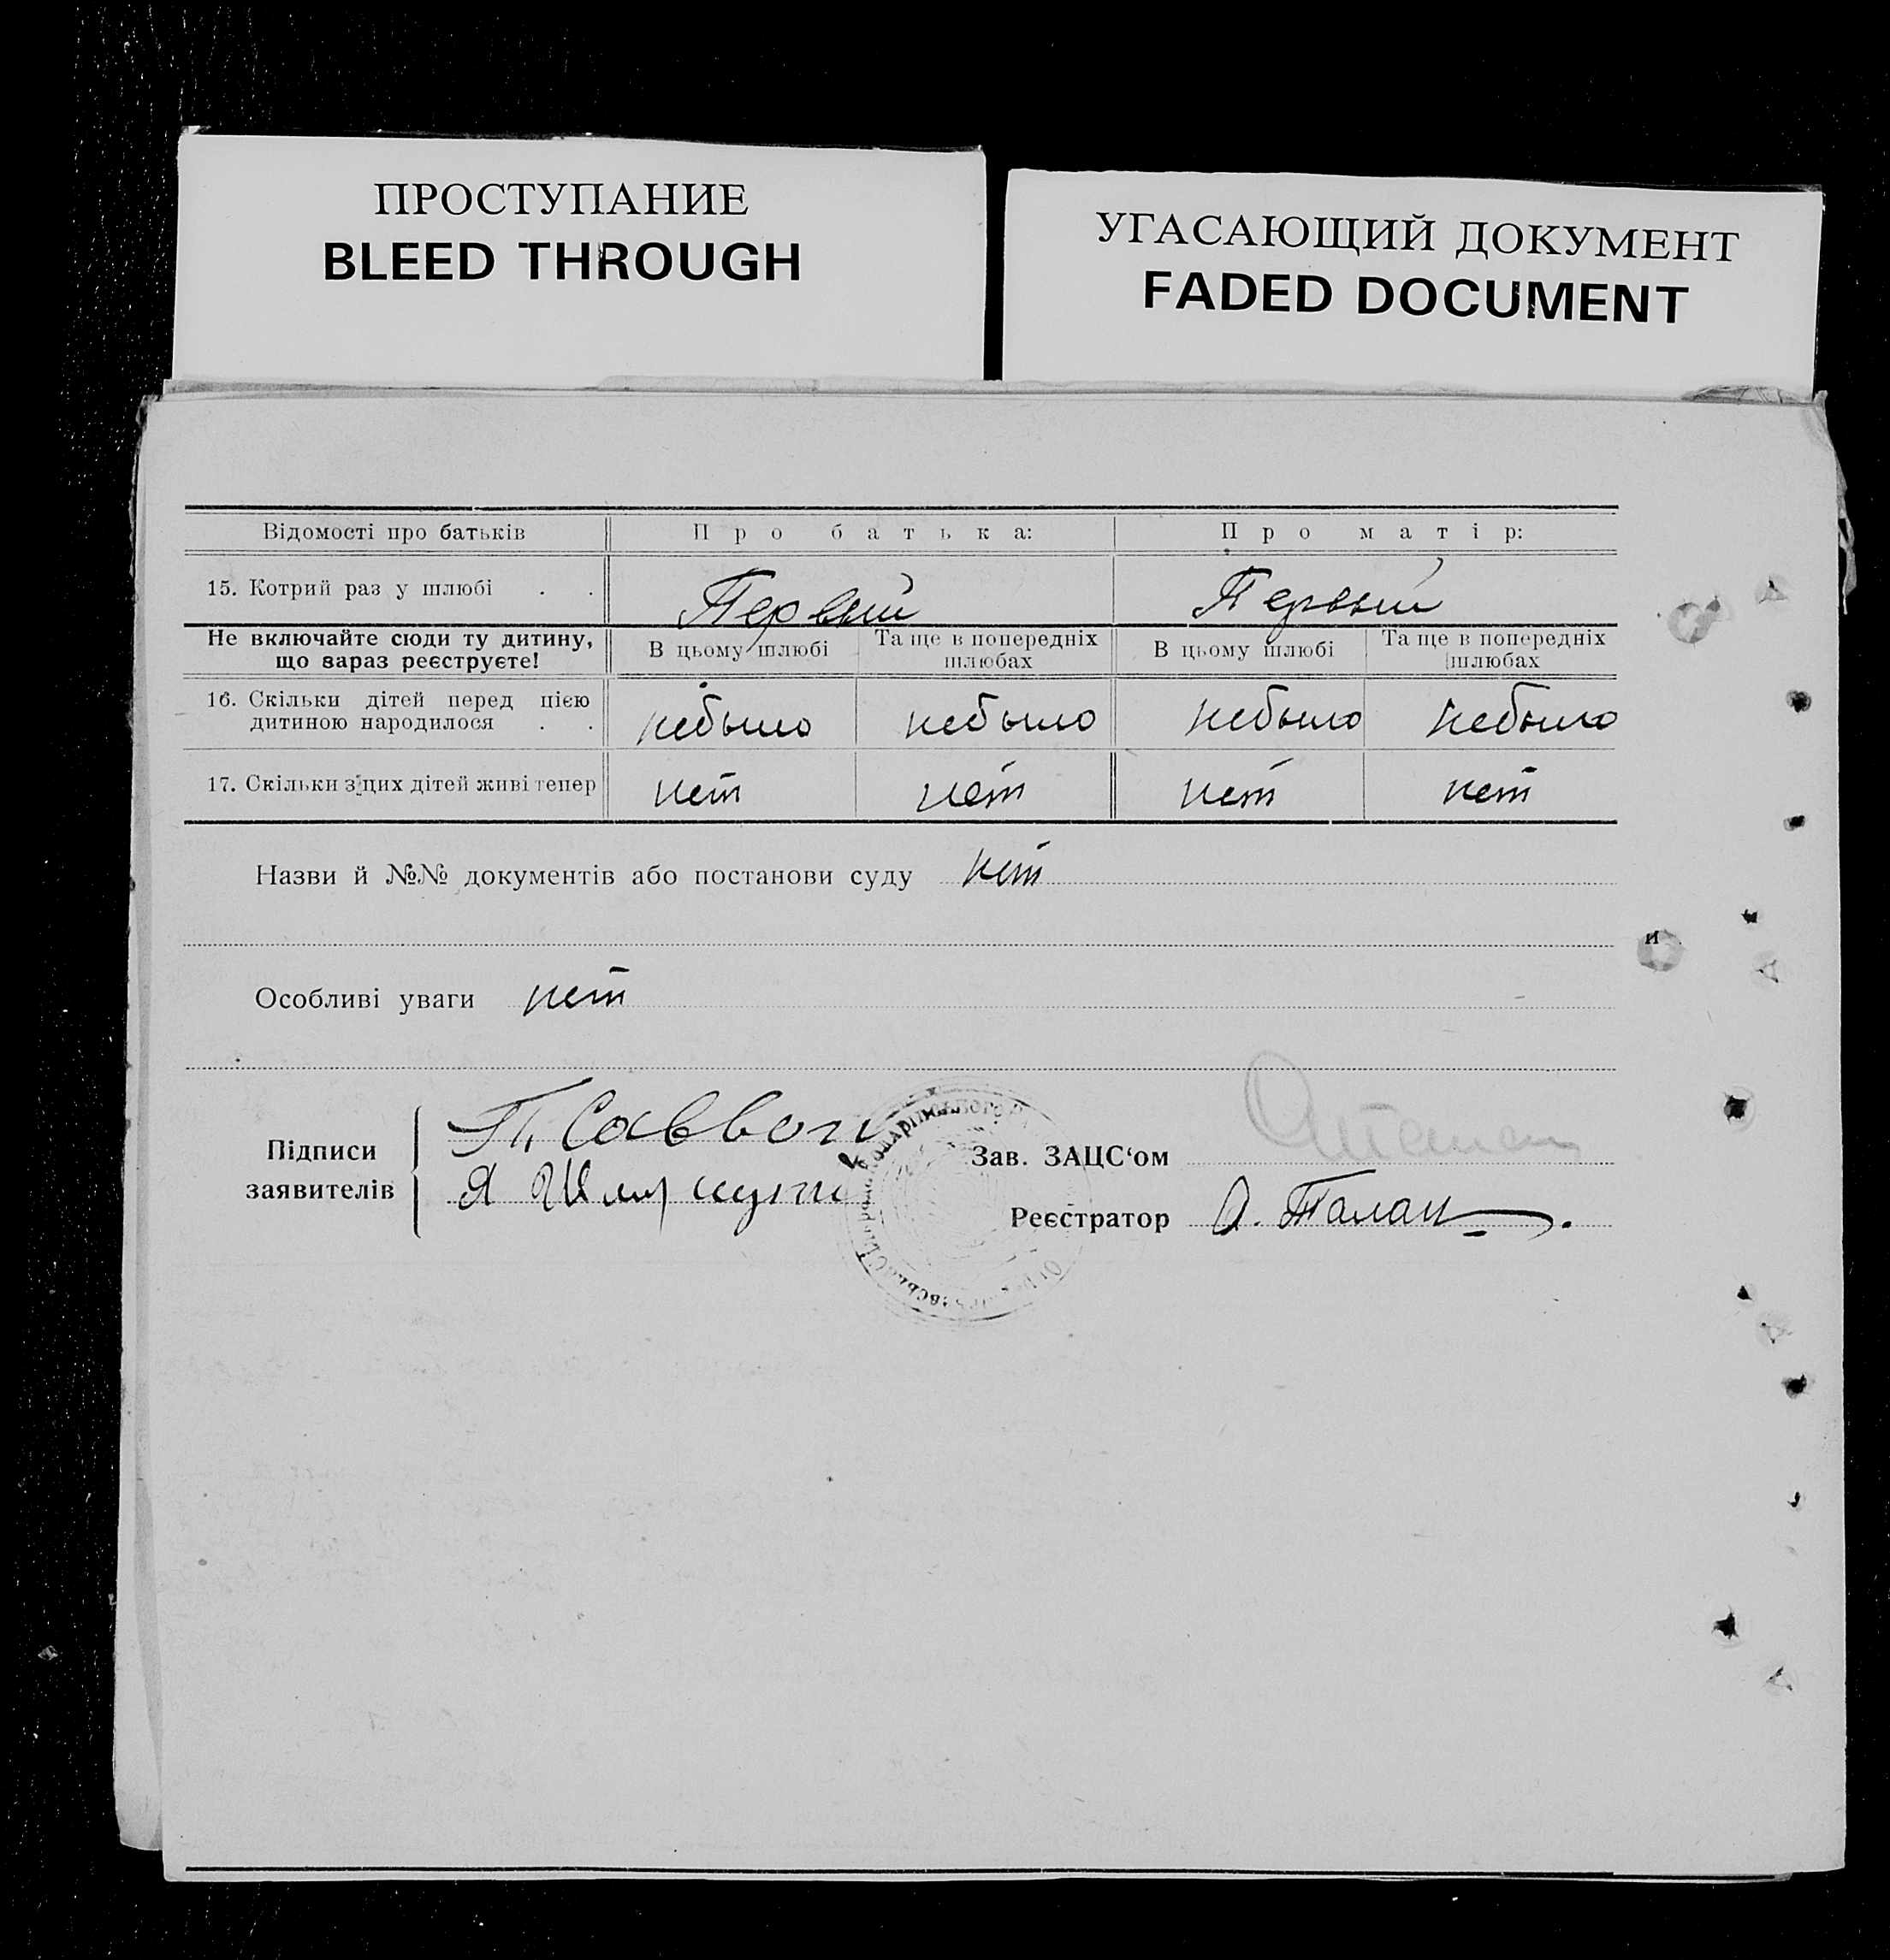 ПРОСТУПАНИЕ
BLEED THROUGH
УГАСАЮЩИЙ ДОКУМЕНТ
FADED DOCUMENT
Відомості про батьків
Про батька:
Про матір:
15. Котрий раз у шлюбі . .
Первый
Первый
Не включайте сюди ту дитину,
що зараз реєструєте!
В цьому шлюбі
Та ще в попередніх
шлюбах
В цьому шлюбі
Та ще в попередніх
шлюбах
16. Скільки дітей перед цією
дитиною народилося . .
небыло
небыло
небыло
небыло
17. Скільки з цих дітей живі тепер
нет
нет
нет
нет
Назви й №№ документів або постанови суду нет
Особливі уваги нет
Підписи
заявителів
Зав. ЗАЦС‘ом
Реєстратор